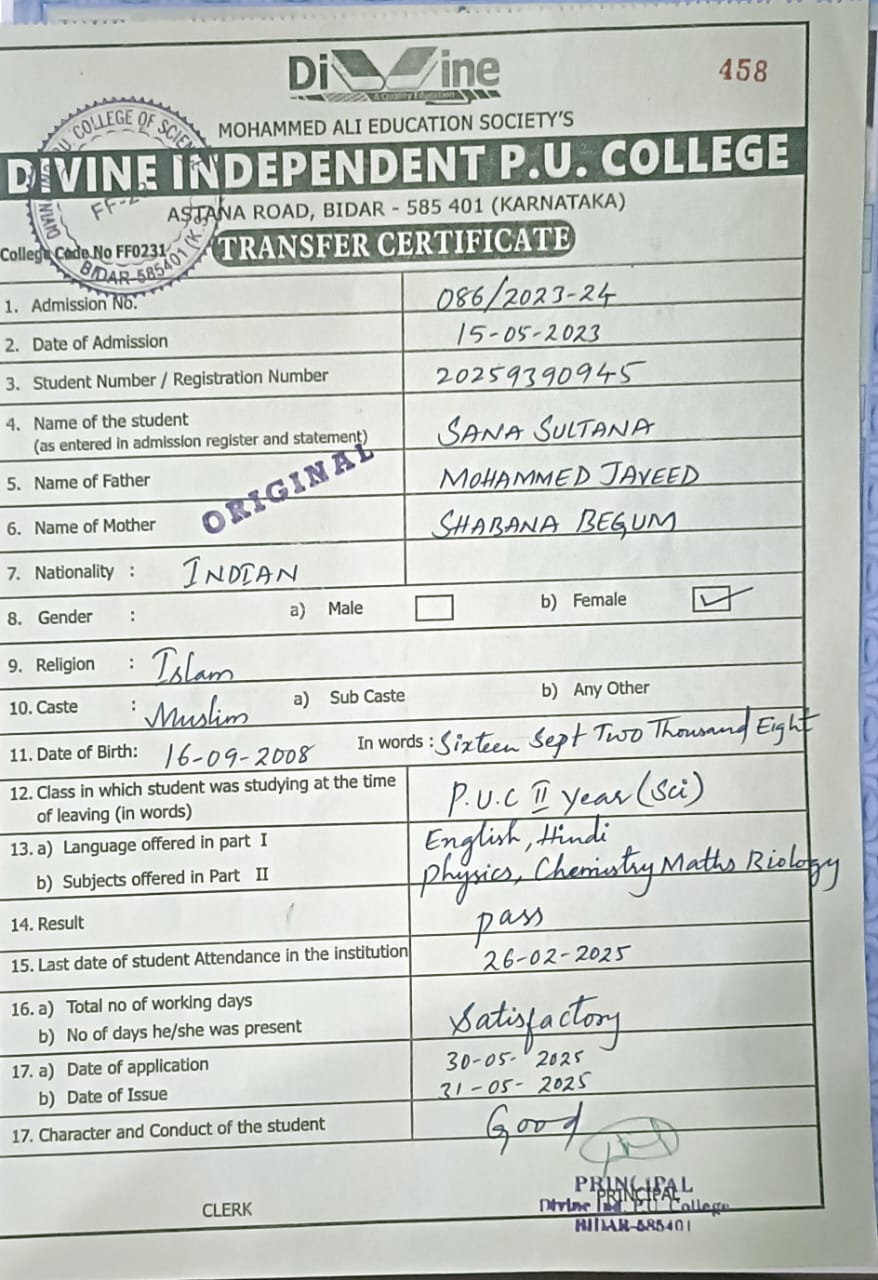 DiVine
A Quality Education
458
MOHAMMED ALI EDUCATION SOCIETY'S
DIVINE INDEPENDENT P.U. COLLEGE
ASTANA ROAD, BIDAR - 585 401 (KARNATAKA)
College Code No FF0231
TRANSFER CERTIFICATE
COLLEGE OF
BIDAR-585401
1. Admission No. 086/2023-24
2. Date of Admission 15-05-2023
3. Student Number / Registration Number 20259390945
4. Name of the student
(as entered in admission register and statement) SANA SULTANA
ORIGINAL
5. Name of Father MOHAMMED JAVEED
6. Name of Mother SHABANA BEGUM
7. Nationality : INDIAN
8. Gender : a) Male b) Female
9. Religion : Islam
10. Caste : Muslim a) Sub Caste b) Any Other
11. Date of Birth: 16-09-2008 In words : Sixteen Sept Two Thousand Eight
12. Class in which student was studying at the time
of leaving (in words) P.U.C II year (Sci)
13. a) Language offered in part I English, Hindi
b) Subjects offered in Part II Physics, Chemistry Maths Biology
14. Result pass
15. Last date of student Attendance in the institution 26-02-2025
16. a) Total no of working days
b) No of days he/she was present Satisfactory
17. a) Date of application 30-05-2025
b) Date of Issue 31-05-2025
17. Character and Conduct of the student Good
PRINCIPAL
PRINCIPAL
Divine Ind. P.U College
BIDAR-585401
CLERK